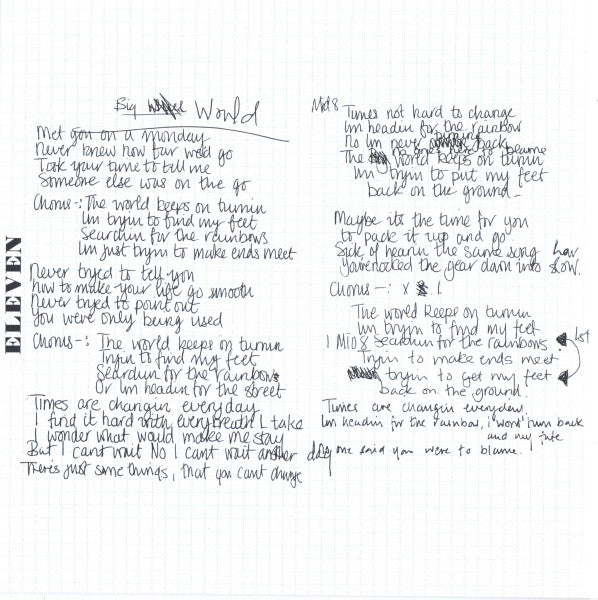 Big World
Met you on a monday
Never knew how far we'd go
Took your time to tell me
Someone else was on the go
Chorus -: The world keeps on turnin
Im tryin to find my feet
Searchin for the rainbows
Im just tryin to make ends meet
Never tryed to tell you
how to make your life go smooth
Never tryed to point out
you were only being used
Chorus -: The world keeps on turnin
Tryin to find my feet
Searchin for the rainbows
Or Im headin for the street
Times are changin everyday
I find it hard with every breath I take
I wonder what would make me stay
But I cant wait No I cant wait another day
Theres just some things, that you cant change
ELEVEN
Mid 8 Times not hard to change
Im headin for the rainbow
No Im never turning back
no ones here to blame
The world keeps on turnin
Im tryin to put my feet
back on the ground
Maybe its the time for you
to pack it up and go
Sick of hearin the same song
the gear down into slow.
Chorus -: x 1
The world keeps on turnin
Im tryin to find my feet
1 Mid 8 Searchin for the rainbows 1st
Tryin to make ends meet
tryin to get my feet
back on the ground.
Times are changin everyday.
Im headin for the rainbow, i wont turn back
and my fate
one said you were to blame.